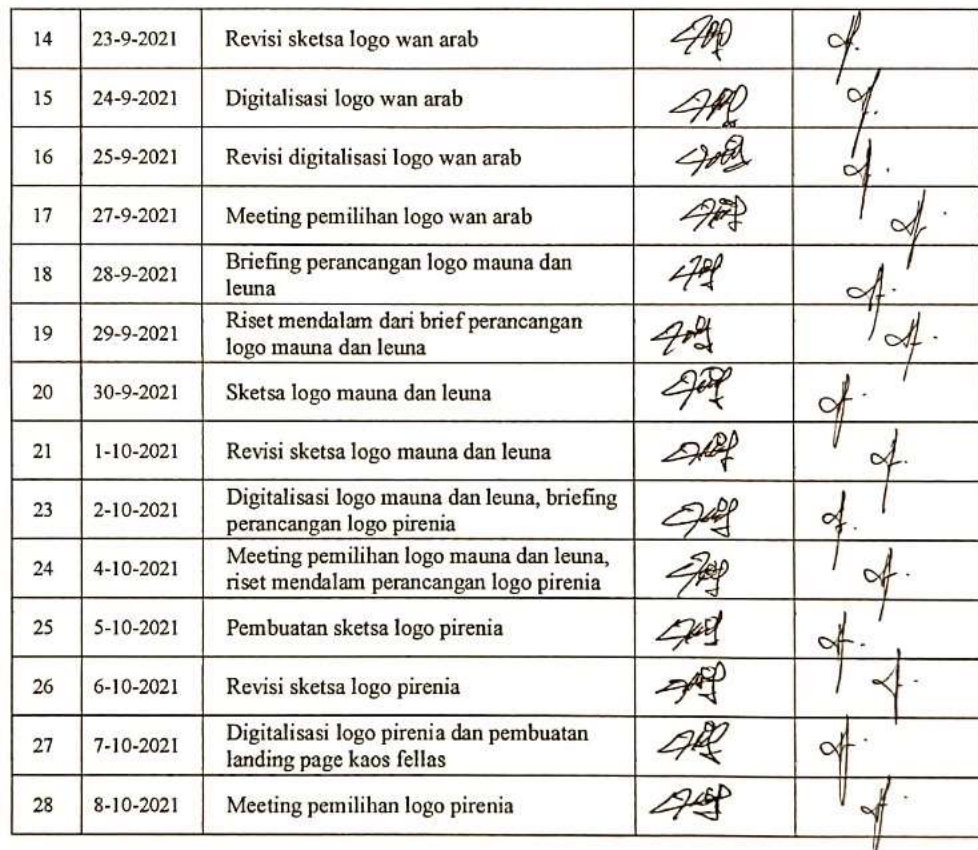 14 23-9-2021 Revisi sketsa logo wan arab
15 24-9-2021 Digitalisasi logo wan arab
16 25-9-2021 Revisi digitalisasi logo wan arab
17 27-9-2021 Meeting pemilihan logo wan arab
18 28-9-2021 Briefing perancangan logo mauna dan
leuna
19 29-9-2021 Riset mendalam dari brief perancangan
logo mauna dan leuna
20 30-9-2021 Sketsa logo mauna dan leuna
21 1-10-2021 Revisi sketsa logo mauna dan leuna
23 2-10-2021 Digitalisasi logo mauna dan leuna, briefing
perancangan logo pirenia
24 4-10-2021 Meeting pemilihan logo mauna dan leuna,
riset mendalam perancangan logo pirenia
25 5-10-2021 Pembuatan sketsa logo pirenia
26 6-10-2021 Revisi sketsa logo pirenia
27 7-10-2021 Digitalisasi logo pirenia dan pembuatan
landing page kaos fellas
28 8-10-2021 Meeting pemilihan logo pirenia